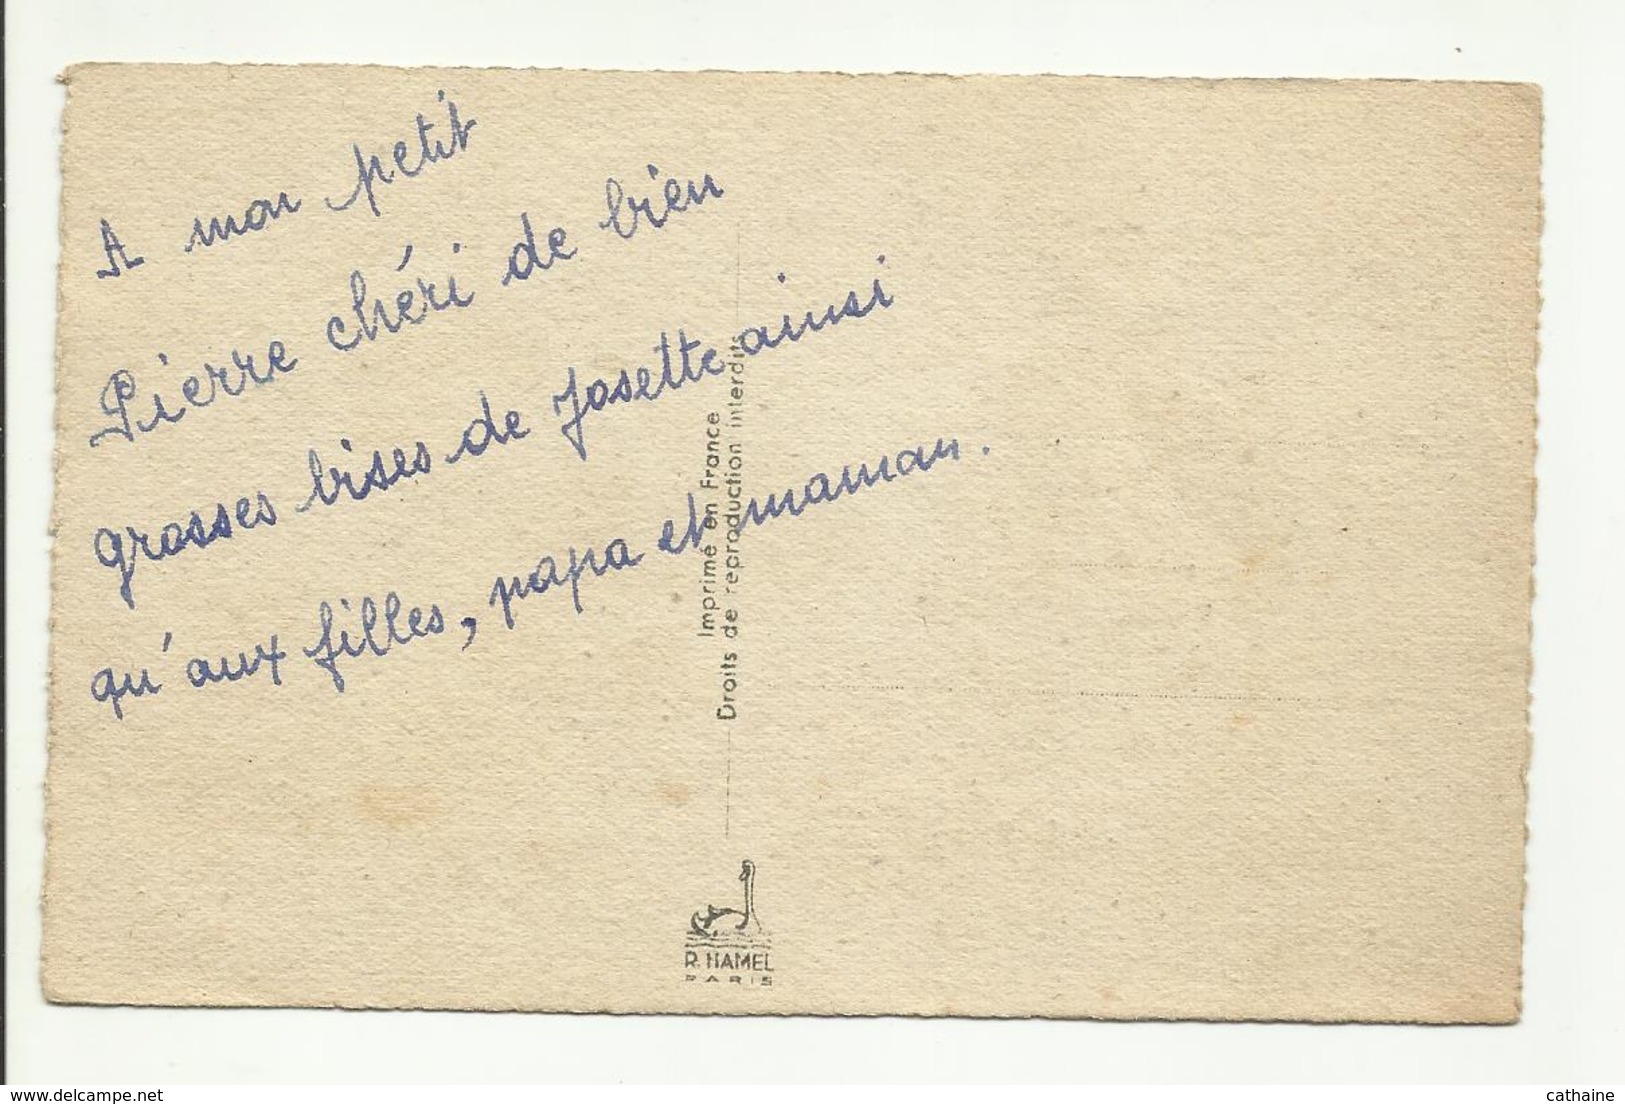 A mon petit
Pierre chéri de bien
grosses bises de Josette ainsi
qu'aux filles, papa et maman.
Imprimé en France
Droits de reproduction interdits
R. HAMEL
PARIS
www.delcampe.net
cathaine